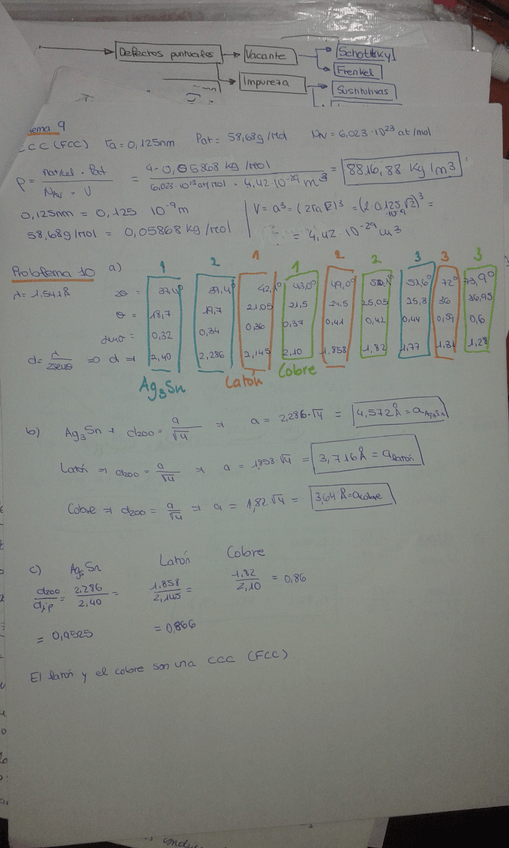 Defectos puntuales
Vacante
Schottky
Frenkel
Impureza
Sustitutivas
ema 9
CCC (FCC) ra = 0,125nm Pat = 58,68g/mol NAv = 6,023·10²³ at/mol
ρ = nartkel·Pat / NAv·V = 4·0,05868 kg/mol / 6,023·10²³ at/mol·4,42·10⁻²⁹ m³ = 8816,88 kg/m³
0,125nm = 0,125 10⁻⁹m
V = a³ = (2ra√2)³ = (2·0,125√2)³ =
·10⁻⁹
58,68g/mol = 0,05868 kg/mol
= 4,42·10⁻²⁹ m³
Problema 10 a)
1 2 1 1 2 2 3 3 3
λ = 1,542Å
2θ = 37,4° 39,4° 42,1° 43,0° 49,0° 50,1° 51,6° 72° 73,9°
θ = 18,7 19,7 21,05 21,5 24,5 25,05 25,8 36 36,95
senθ = 0,32 0,34 0,36 0,37 0,41 0,42 0,44 0,59 0,6
d = λ/2senθ => d => 2,40 2,286 2,145 2,10 1,858 1,82 1,77 1,31 1,28
Ag₃Sn Latón Cobre
b) Ag₃Sn → d200 = a/√4 → a = 2,286·√4 = 4,572Å = aAg₃Sn
Latón → d200 = a/√4 → a = 1,858·√4 = 3,716Å = aLatón
Cobre → d200 = a/√4 → a = 1,82√4 = 3,64 Å = acobre
c) Ag₃Sn Latón Cobre
d200/d1ºp = 2,286/2,40 = 1,858/2,145 = 1,82/2,10 = 0,86
= 0,9525 = 0,866
El latón y el cobre son una CCC (FCC)